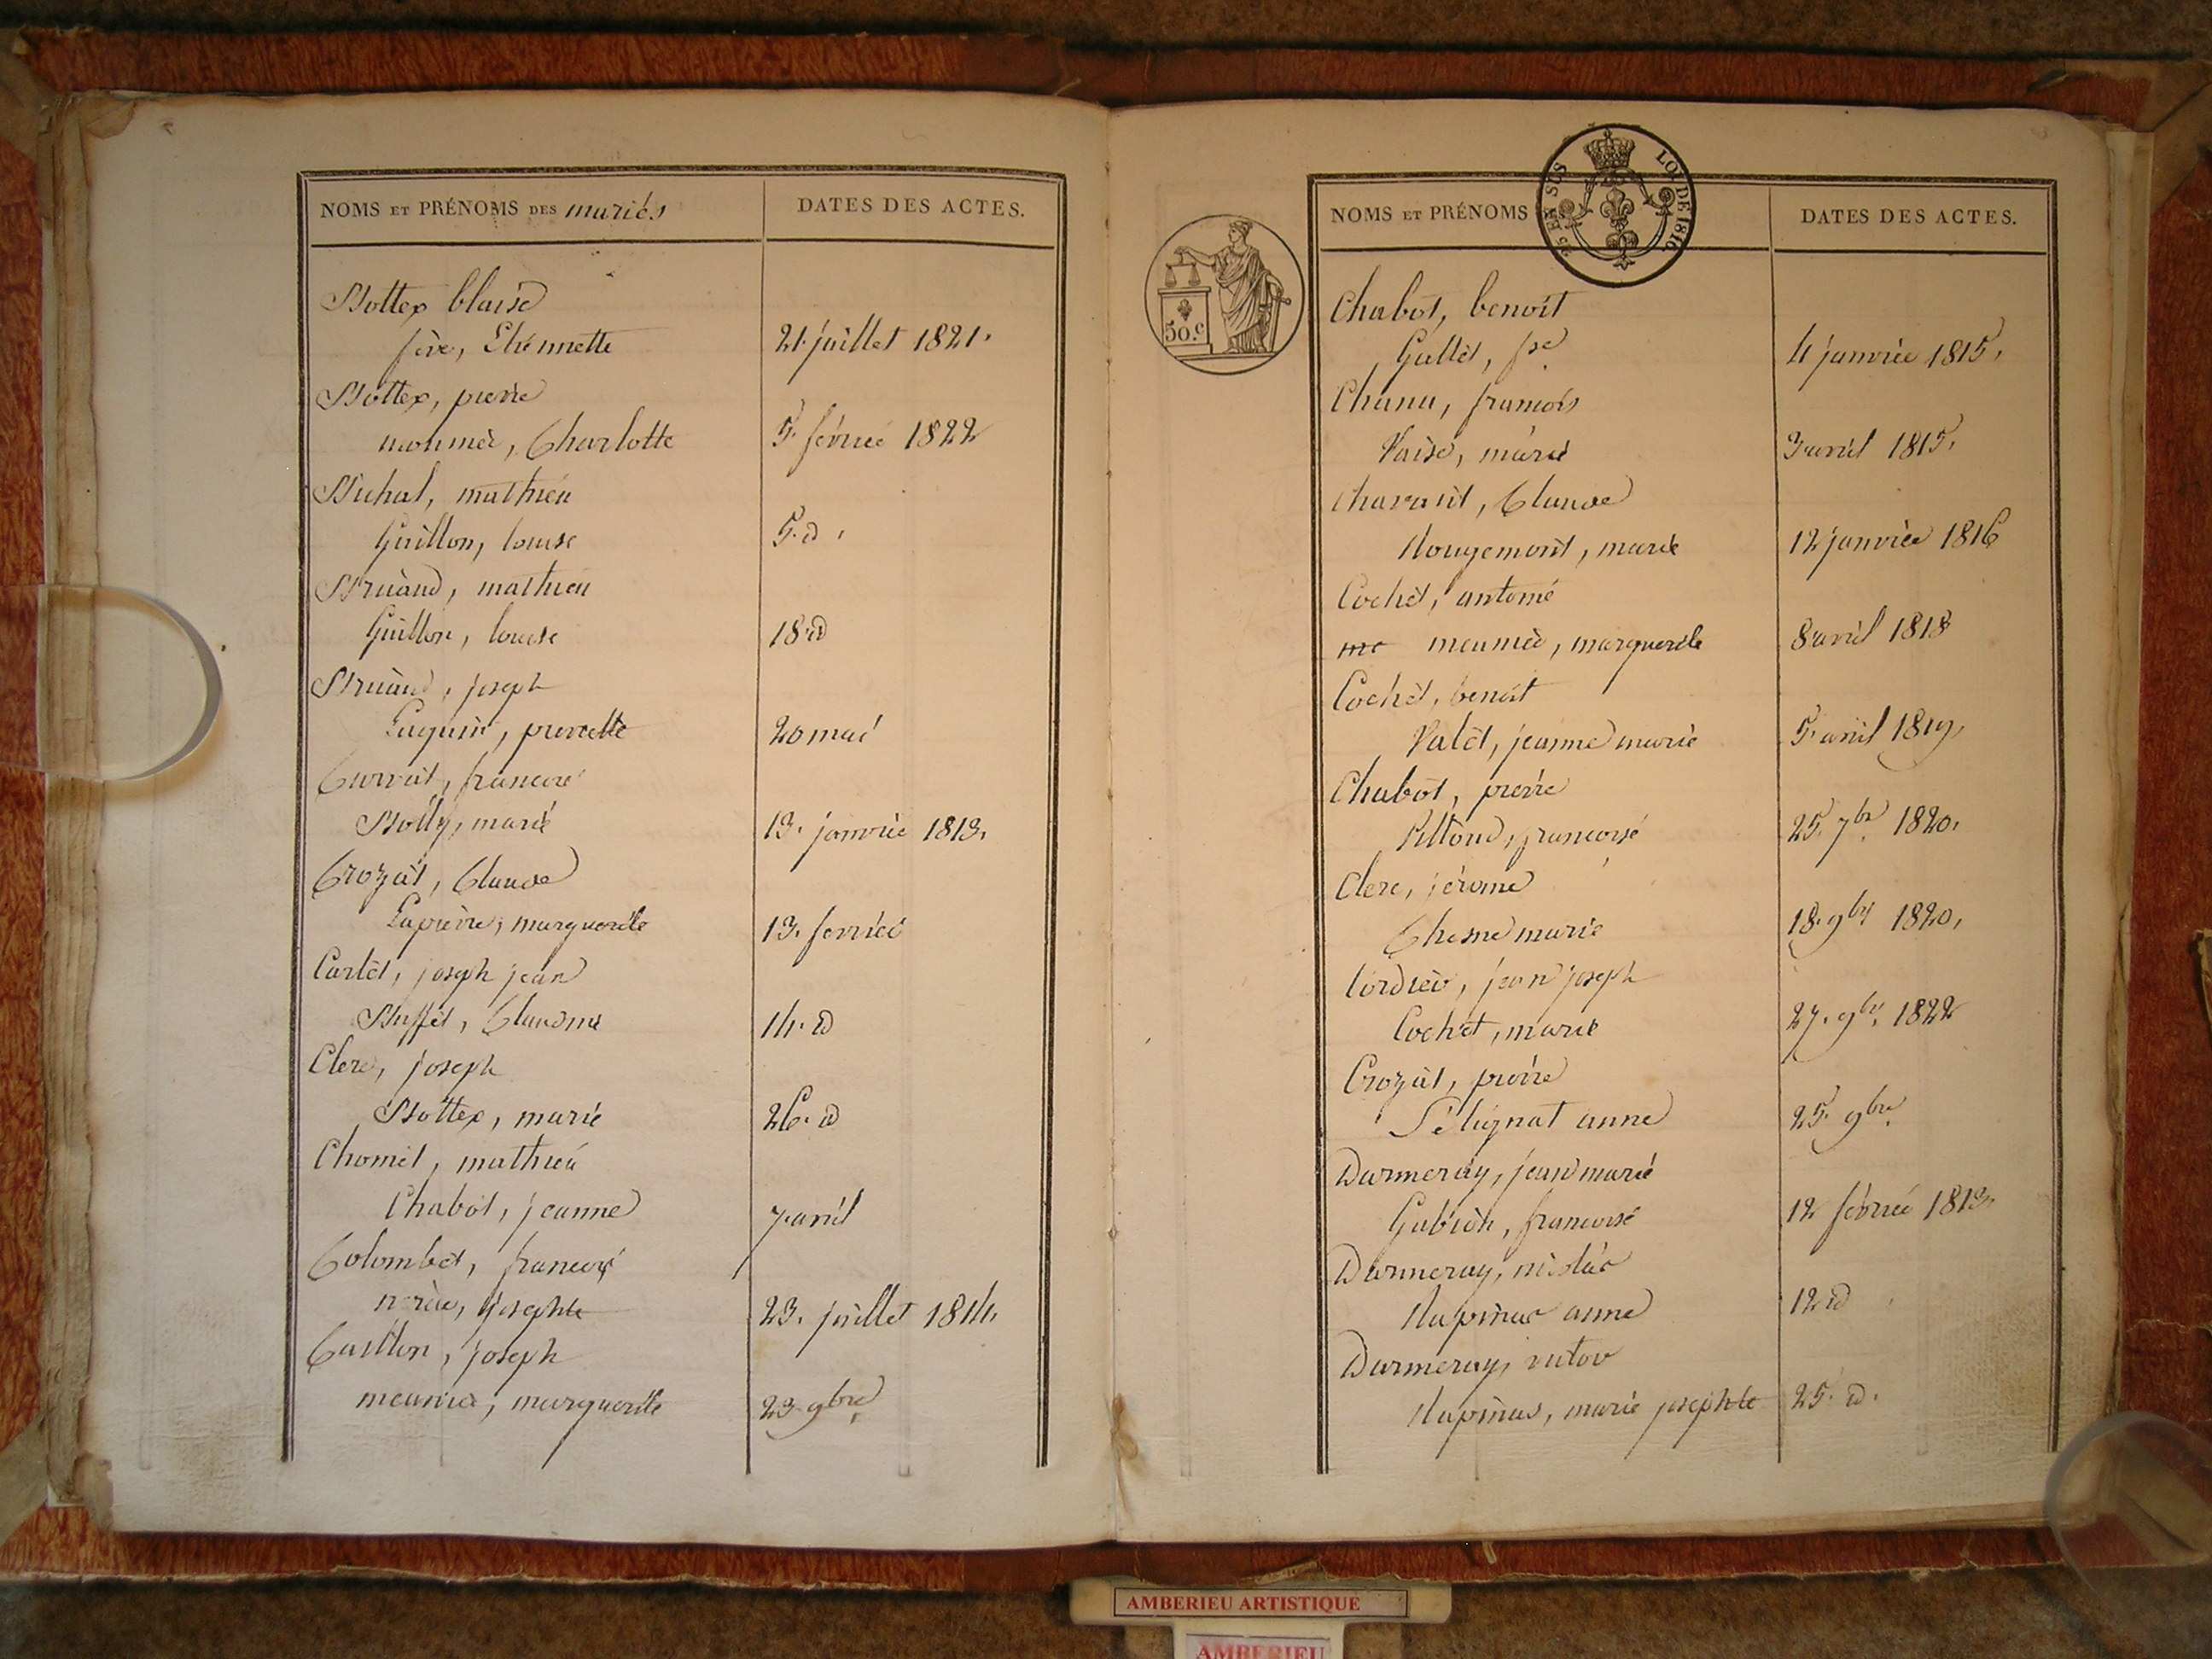 NOMS ET PRÉNOMS DES mariés
DATES DES ACTES.
Bottex blaise
fère, Ethiennette
21. juillet 1821.
Bottex, pierre
meunier, Charlotte
5. février 1822
Buchal, mathieu
Guillon, louise
5. d
Bruand, mathieu
Guillon, louise
18 d
Bruand, joseph
pierrette
20 mai
Currat, francois
Bolly, marie
13. janvier 1813.
Crozat, Claude
Lapierre, marguerite
13. février
Cartet, joseph jean
Buffet, Claudine
14. d
Clerc, joseph
Bottex, marie
26. d
Chomel, mathieu
Chabot, jeanne
7 avril
Colombet, francois
josephte
23. juillet 1814.
Castton, joseph
meunier, marguerite
23. 9bre
NOMS ET PRÉNOMS
DATES DES ACTES.
25 EN SUS
LOI DE 1816
50.c
Chabot, benoit
Gullet, fse
4 janvier 1815.
Chanu, francois
Vaise, marie
3 avril 1815.
Charvait, Claude
Rougemont, marie
12 janvier 1816
Cochet, antoine
me meunier, marguerite
8 avril 1818
Cochet, benoit
Valet, jeanne marie
5. avril 1819.
Chabot, pierre
francoise
25. 7bre 1820.
Clerc, jérome
Chesne marie
18. 9bre 1820.
Cordier, jean joseph
Cochet, marie
27. 9bre. 1822
Crozat, pierre
Pelignat anne
25. 9bre.
Darmeray, jean marie
Gubian, francoise
12 février 1813.
Darmeray, nicolas
Rapinas anne
12 d
Darmeray, victor
Rapinas, marie josephte
25. d.
AMBERIEU ARTISTIQUE
AMBERIEU